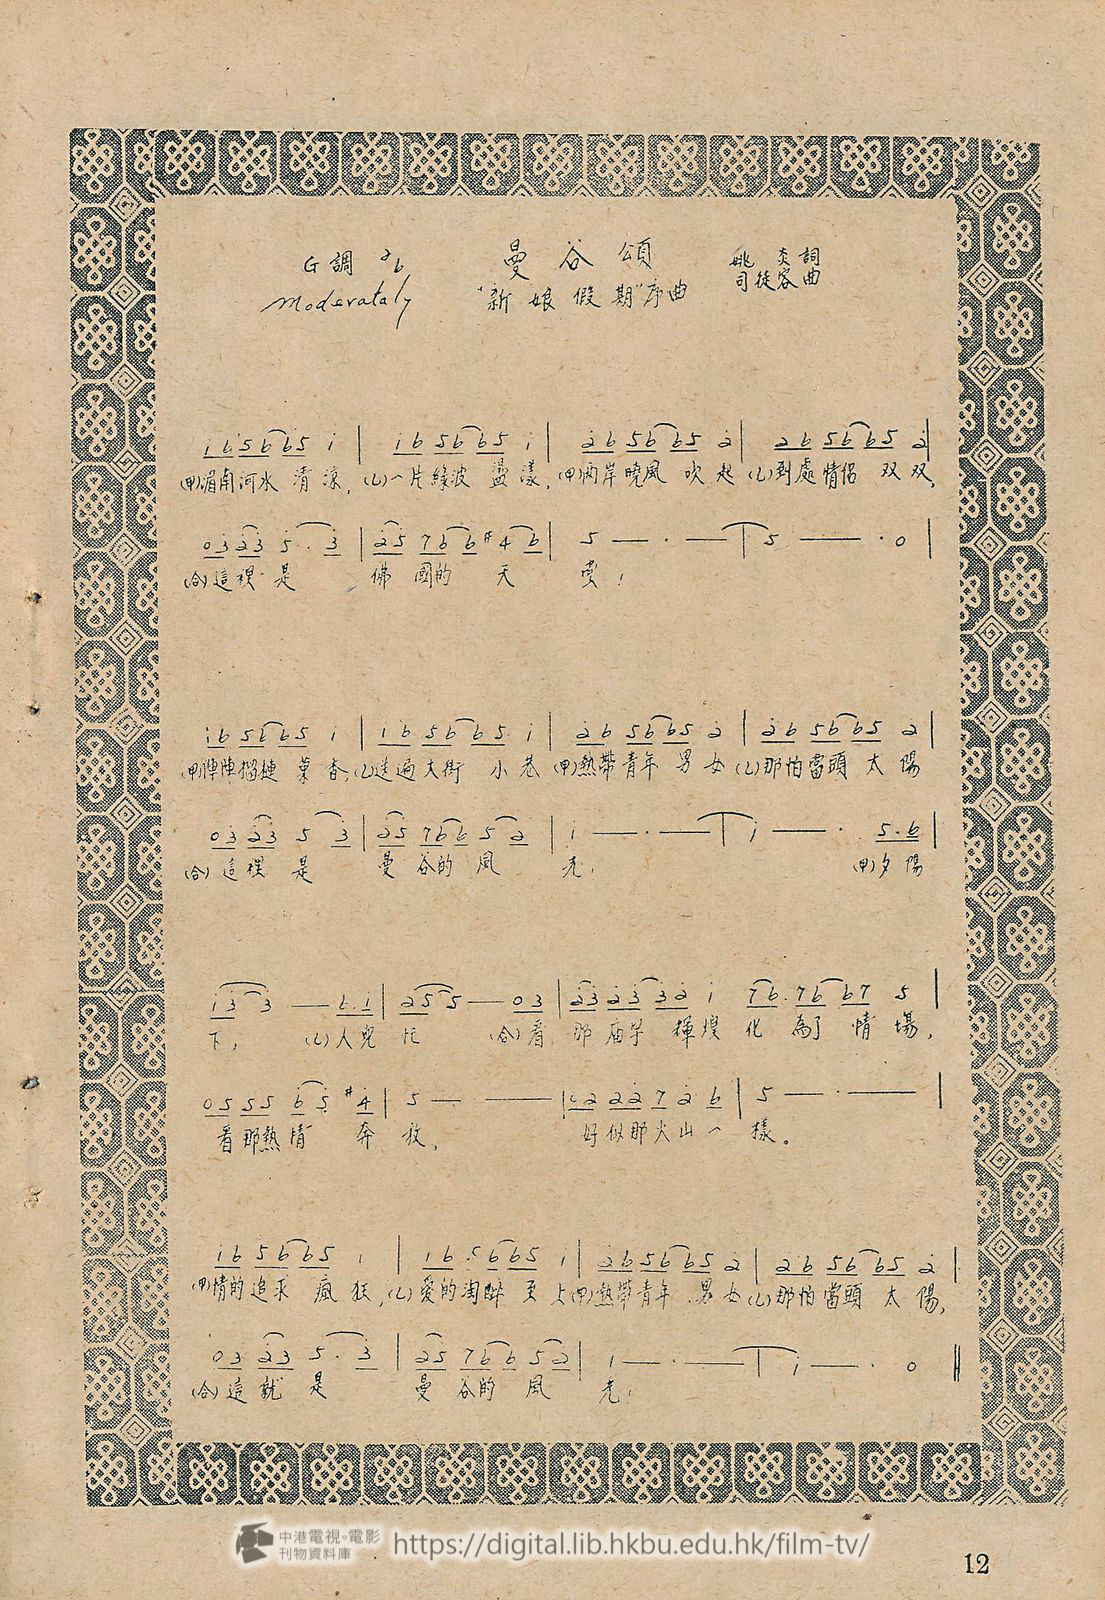 G調
曼谷頌
姚炎詞
司徒容曲
Moderataly
"新娘假期"序曲
i 6 5 6 6 5 i | i 6 5 6 6 5 i | 2 6 5 6 6 5 2 | 2 6 5 6 6 5 2 |
(甲)湄南河水清涼,(乙)一片綠波盪漾,(甲)兩岸曉風吹起(乙)到處情侶双双,
0 3 2 3 5 . 3 | 2 5 7 6 6 #4 6 | 5 — . — 5 — . 0 |
(合)這裡是佛國的天堂!
i 6 5 6 6 5 i | i 6 5 6 6 5 i | 2 6 5 6 6 5 2 | 2 6 5 6 6 5 2 |
(甲)陣陣榴槤菓香,(乙)送遍大街小巷(甲)熱帶青年男女(乙)那怕當頭太陽
0 3 2 3 5 3 | 2 5 7 6 6 5 2 | i — . — i — . 5 . 6 |
(合)這裡是曼谷的風光!(甲)夕陽
i 3 3 — 6 . i | 2 5 5 — 0 3 | 2 3 2 3 3 2 i 7 6 . 7 6 6 7 5 |
下,(乙)人兒忙(合)看那廟宇輝煌化為了情場,
0 5 5 5 6 5 #4 | 5 — . — | 0 2 2 2 7 2 6 | 5 — . — |
看那熱情奔放,好似那火山一樣。
i 6 5 6 6 5 i | i 6 . 5 6 6 5 i | 2 6 5 6 6 5 2 | 2 6 5 6 6 5 2 |
(甲)情的追求瘋狂,(乙)愛的淘醉至上(甲)熱帶青年男女(乙)那怕當頭太陽,
0 3 2 3 5 . 3 | 2 5 7 6 6 5 2 | i — . — i — . 0 ||
(合)這就是曼谷的風光!
中港電視·電影
刊物資料庫
https://digital.lib.hkbu.edu.hk/film-tv/
12